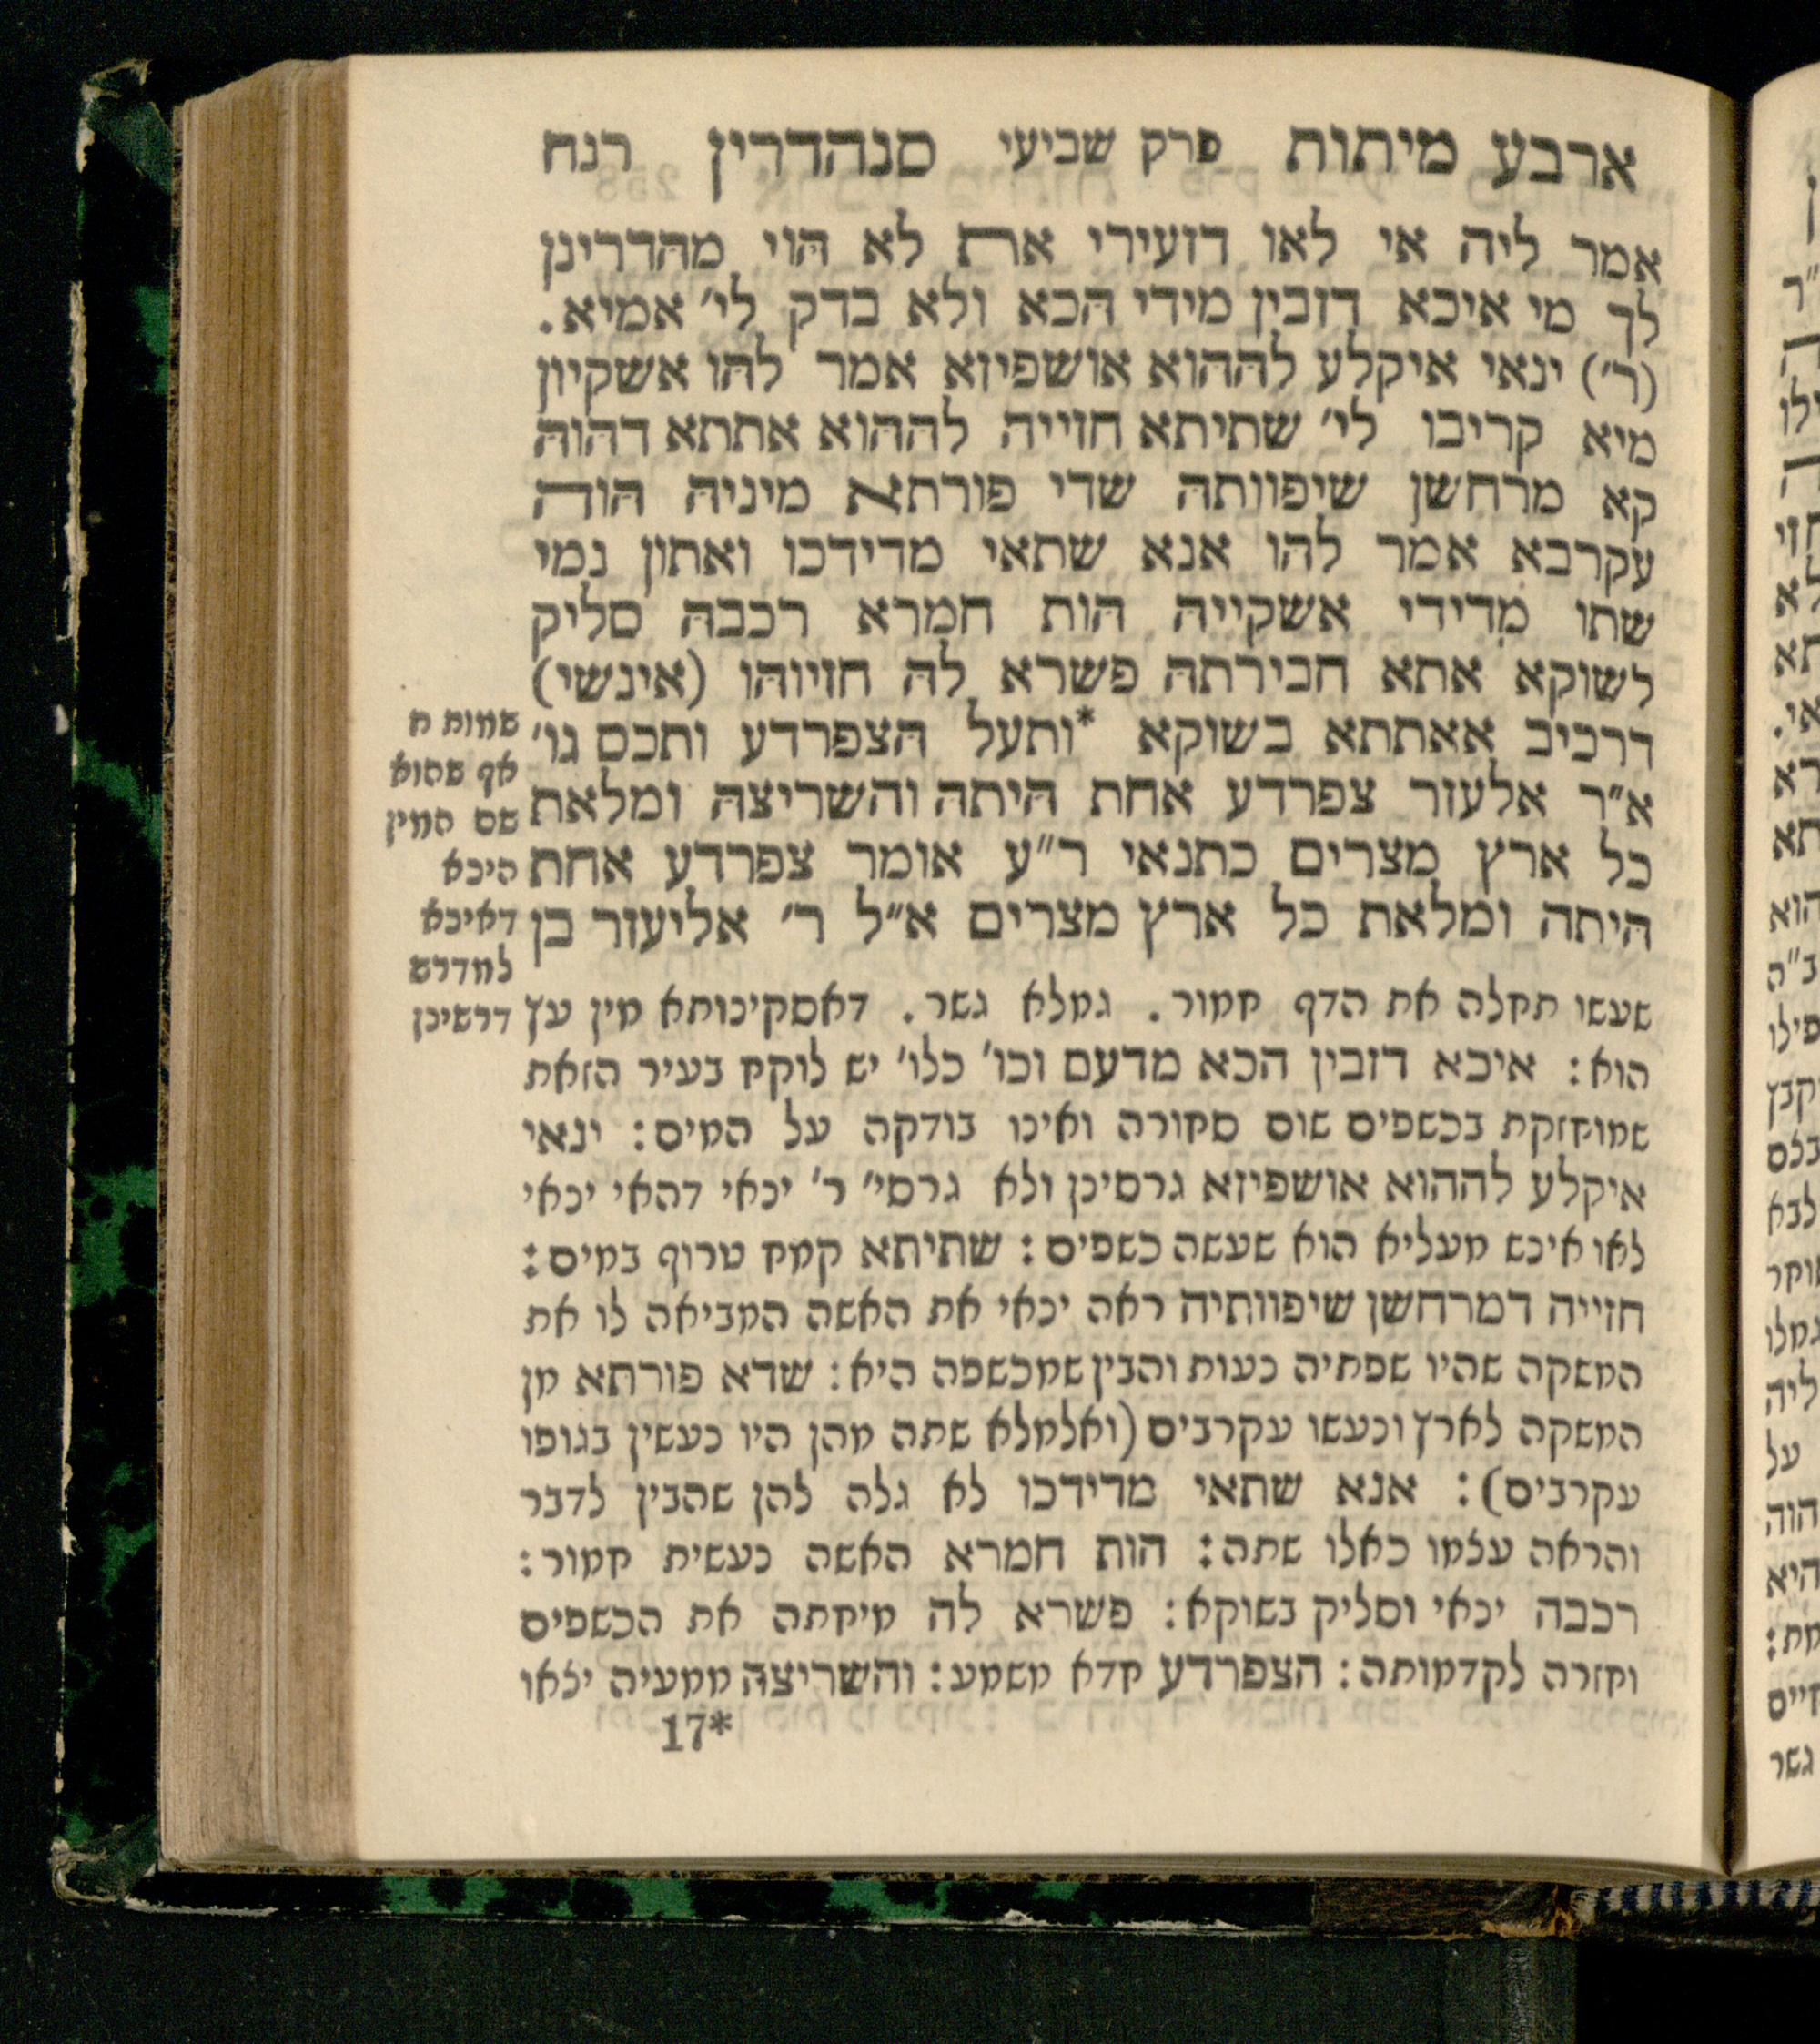 ארבע מיתות פרק שביעי סנהדרין רנח
אמר ליה אי לאו דזעירי את לא הוי מהדרינן
לך מי איכא דזבין מידי הכא ולא בדק לי׳ אמיא.
(ר׳) ינאי איקלע לההוא אושפיזא אמר להו אשקיון
מיא קריבו לי׳ שתיתא חזייה לההוא אתתא דהוה
קא מרחשן שיפוותה שדי פורתא מיניה הוה
עקרבא אמר להו אנא שתאי מדידכו ואתון נמי
שתו מדידי אשקייה הות חמרא רכבה סליק
לשוקא אתא חבירתה פשרא לה חזיוהו (אינשי)
דרכיב אאתתא בשוקא *ותעל הצפרדע ותכס גו׳
א״ר אלעזר צפרדע אחת היתה והשריצה ומלאת
כל ארץ מצרים כתנאי ר״ע אומר צפרדע אחת
היתה ומלאת כל ארץ מצרים א״ל ר׳ אליעזר בן
שמות ח
אף שהוא
שם המין
היכא
דאיכא
למדרש
דרשינן
שעשו תחלה את הדף חמור. גמלא גשר. דאסקינותא מין עץ
הוא: איכא דזבין הכא מדעם וכו׳ כלו׳ יש לוקח בעיר הזאת
שמוחזקת בכשפים שום סחורה ואינו בודקה על המים: ינאי
איקלע לההוא אושפיזא גרסינן ולא גרסי׳ ר׳ ינאי דהאי ינאי
לאו איניש מעליא הוא שעשה כשפים: שתיתא קמח טרוף במים:
חזייה דמרחשן שיפוותיה ראה ינאי את האשה המביאה לו את
המשקה שהיו שפתיה נעות והבין שמכשפה היא: שדא פורתא מן
המשקה לארץ ונעשו עקרבים (ואלמלא שתה מהן היו נעשין בגופו
עקרבים): אנא שתאי מדידכו לא גלה להן שהבין לדבר
והראה עצמו כאלו שתה: הות חמרא האשה נעשית חמור:
רכבה ינאי וסליק בשוקא: פשרא לה מיחתה את הכשפים
וחזרה לקדמותה: הצפרדע חדא משמע: והשריצה ממעיה יצאו
17*